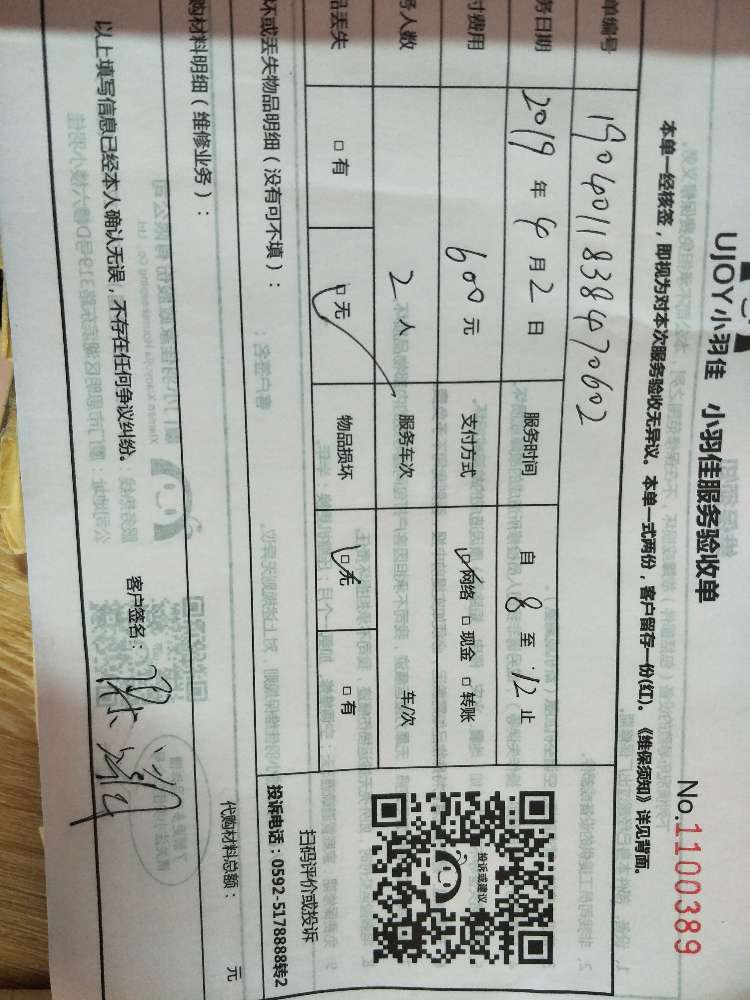 UJOY小羽佳 小羽佳服务验收单
No.1100389
本单一经核签，即视为对本次服务验收无异议。本单一式两份，客户留存一份(红)。《维保须知》详见背面。
单编号 1904011838470602
务日期 2019 年 4 月 2 日 服务时间 自 8 至 12 止
付费用 600 元 支付方式 □网络 □现金 □转账
务人数 2 人 服务车次 车/次
品丢失 □有 □无 物品损坏 □无 □有
投诉或建议
扫码评价或投诉
投诉电话：0592-5178888转2
坏或丢失物品明细（没有可不填）：
购材料明细（维修业务）：
代购材料总额： 元
以上填写信息已经本人确认无误，不存在任何争议纠纷。
客户签名：